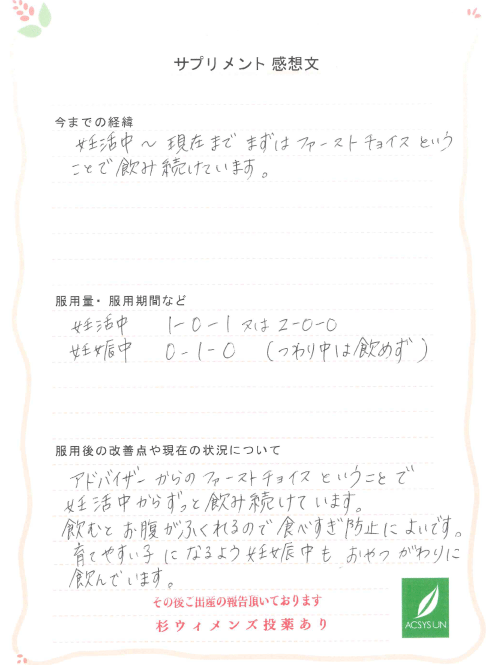 サプリメント 感想文
今までの経緯
妊活中～現在まで まずはファーストチョイスという
ことで飲み続けています。
服用量・服用期間など
妊活中 1-0-1 又は 2-0-0
妊娠中 0-1-0 (つわり中は飲めず)
服用後の改善点や現在の状況について
アドバイザーからのファーストチョイスということで
妊活中からずっと飲み続けています。
飲むとお腹がふくれるので食べすぎ防止によいです。
育てやすい子になるよう妊娠中もおやつがわりに
飲んでいます。
その後ご出産の報告頂いております
杉ウィメンズ投薬あり
ACSYSUN